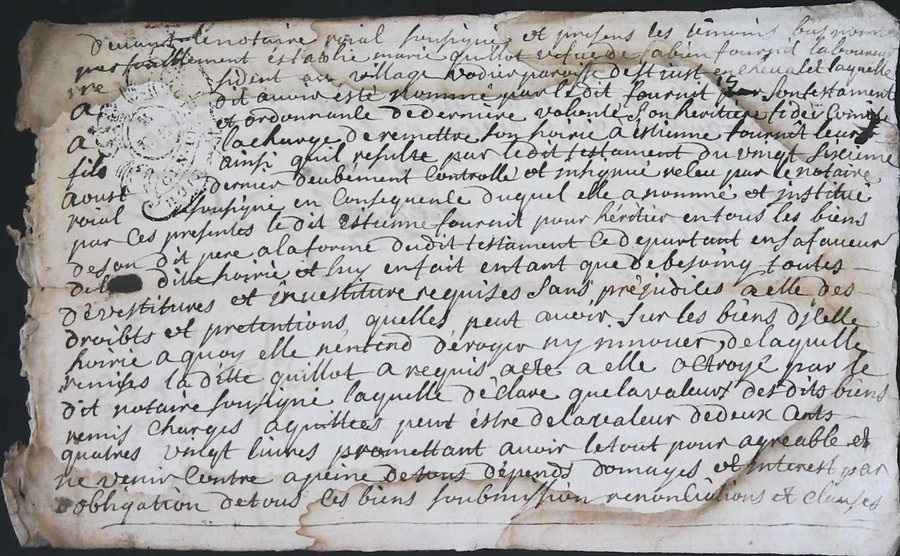 devant le notaire roial soussigné et presens les témoins bas nommés
personellement establie marie quillot vefve de fabien fournil laboureur
au village vodier paroisse de st just en chevalet laquelle
dit avoir esté nommée par ledit fournil son testament
et ordonnance de derniere volonté son heritiere fidei
la charge de remettre son hoirie a estienne fournil leur
fils ainsi quil resulte par ledit testament du vingt sixieme
aoust dernier deubément controllé et insignué receu par le notaire
roial soussigné en consequence duquel elle a nommé et institué
par ces presentes ledit estienne fournil pour héritier en tous les biens
de son dit pere a la forme dudit testament ce departant en sa faveur
de la ditte hoirie et luy en fait entant que de besoing toutes
dévestitures et investiture requises sans préjudices a elle des
droibts et pretentions quelles peut avoir sur les biens dicelle
hoirie a quoy elle nentend déroger ny innover, de laquelle
remises la ditte quillot a requis acte a elle octroyé par le
dit notaire soussigné laquelle déclare que la valeur des dits biens
remis charges aquittées peut éstre de la valeur de deux cents
quatres vingt livres promettant avoir le tout pour agreable et
ne venir contre a peine de tous dépends domages et interest par
obligation de tous ces biens soubmission renonciations et clauses